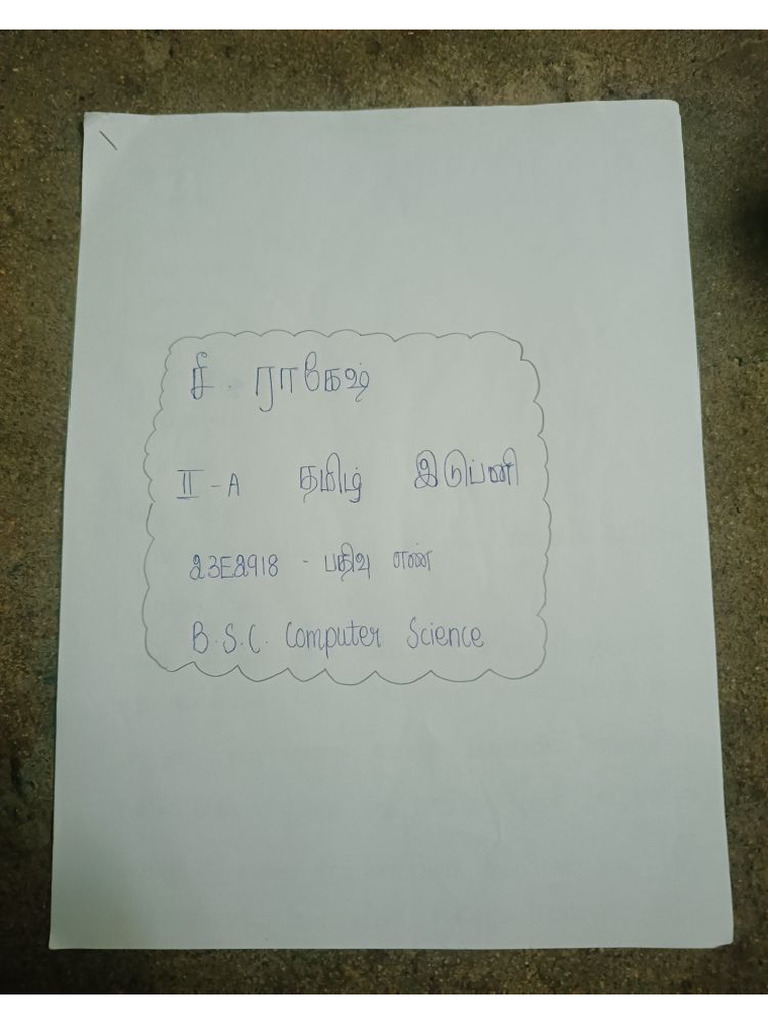 சீ. ராகேஷ்
II - A தமிழ் இடுப்ணி
23E2918 - பதிவு எண்
B.S.C. Computer Science